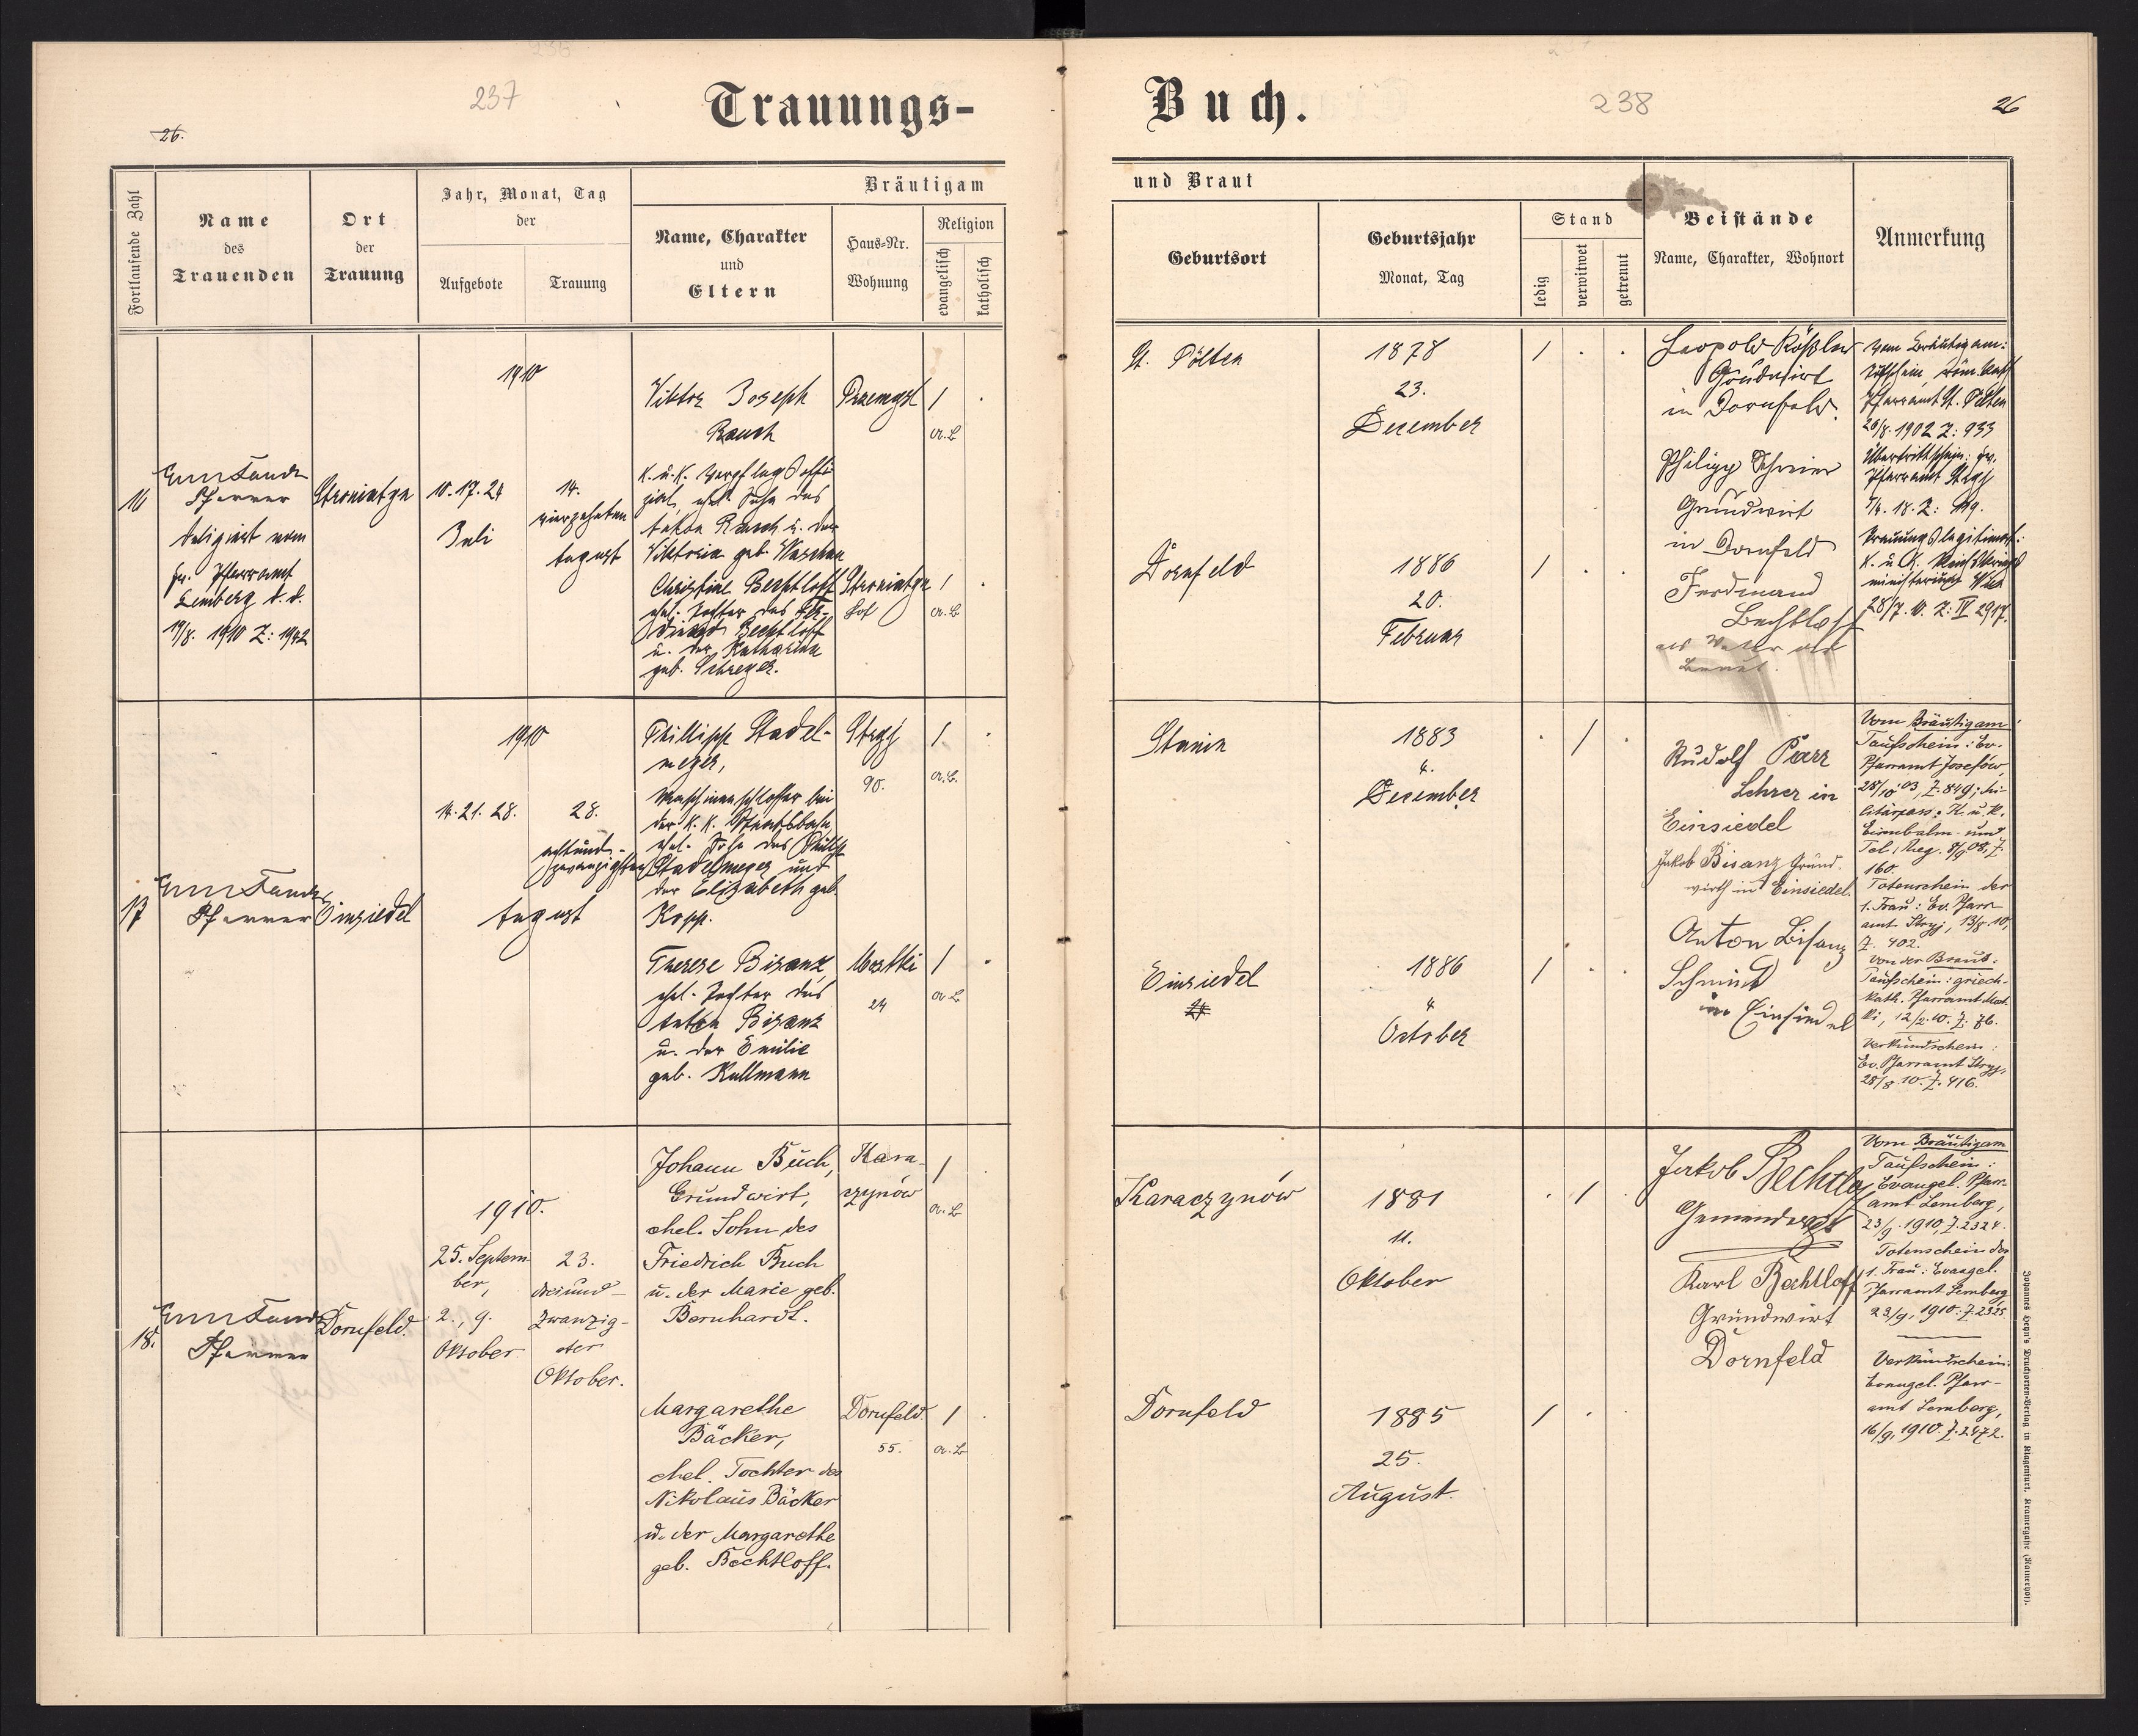 237
Trauungs-
26.
Fortlaufende Zahl
Name
des
Trauenden
Ort
der
Trauung
Jahr, Monat, Tag
der
Aufgebote
Trauung
Bräutigam
Name, Charakter
und
Eltern
Haus-Nr.
Wohnung
Religion
evangelisch
katholisch
16
Pfarrer
delegiert vom
ev. Pfarramt
Lemberg d. d.
1910 Z: 1942
Stroniatyn
1910
10. 17. 24
Juli
14.
vierzehnten
August
Viktor Joseph
Rauch
k. u. k. Verpflegsoffi-
zial, ehel. Sohn des
Anton Rauch u. der
Viktoria geb.
Przemysl
/
A.B
Christine Bechtloff
ehel. Tochter des Fer-
dinand Bechtloff
u. der Katharina
geb. Schreyer.
Stroniatyn
Hof
/
A.B
17
Pfarrer
Einsiedel
1910
14. 21. 28.
28.
achtund-
zwanzigsten
August
Phillipp Stadel-
meyer,
Maschinenschlosser bei
der k. k. Staatsbahn
ehel. Sohn des Philipp
Stadelmeyer und
der Elizabeth geb.
Kopp.
Stryj
90.
/
A.B.
Therese Bisanz,
ehel. Tochter des
Anton Bisanz
u. der Emilie
geb. Kullmann
Mostki
24
/
A.B
18.
Pfarrer
Dornfeld.
1910.
25. Septem-
ber,
2., 9.
Oktober.
23.
dreiund-
zwanzig-
ster
Oktober.
Johann Buch,
Grundwirt,
ehel. Sohn des
Friedrich Buch
u. der Marie geb.
Bernhardt.
Kara-
czynów
/
A.B
Margarethe
Bäcker,
ehel. Tochter des
Nikolaus Bäcker
u. der Margarethe
geb. Bechtloff.
Dornfeld.
55.
/
A.B
Buch.
238
26
und Braut
Geburtsort
Geburtsjahr
Monat, Tag
Stand
ledig
verwitwet
getrennt
Beistände
Name, Charakter, Wohnort
Anmerkung
St. Pölten
1878
23.
December
/
Leopold Rößler
Grundwirt
in Dornfeld.
Philipp Schreier
Grundwirt
in Dornfeld
Dornfeld
1886
20.
Februar
/
Ferdinand
Bechtloff
als Vater der
Braut.
Vom Bräutigam:
Taufschein, röm. kath
Pfarramt St. Pölten
26/8. 1902 Z: 933
Übertrittschein: ev.
Pfarramt Stryj
Trauungslegitimat.:
K. u. K. Reichskriegs
ministerium Wien
28/7. 10. Z: IV 2917.
Stanin
1883
4.
Dezember
/
Rudolf Parr
Lehrer in
Einsiedel
Jakob Bisanz Grund-
wirth in Einsiedel.
Anton Bisanz
Schmied
in Einsiedel
Einsiedel
1886
4
October
/
Vom Bräutigam
Taufschein: Ev.
Pfarramt Josefów,
28/10 03, Z. 849; Mi-
litärpass: K. u. k.
Eisenbahn- und
Tel. Reg. 8/9 08, Z.
160.
Totenschein der
1. Frau: Ev. Pfarr-
amt Stryj, 13/8. 10,
Z. 402.
Von der Braut:
Taufschein: griech-
kath. Pfarramt Most-
ki, 12/2. 10. Z. 76.
Verkündschein:
Ev. Pfarramt Stryj,
28/8. 10. Z. 416.
Karaczynów
1881
11.
Oktober
/
Jakob Bechtloff
Karl Bechtloff
Grundwirt
Dornfeld
Dornfeld
1885
25.
August.
/
Vom Bräutigam
Taufschein:
Evangel. Pfarr-
amt Lemberg,
23/9. 1910, Z. 2324.
Totenschein der
1. Frau: Evangel.
Pfarramt Lemberg
23/9. 1910. Z. 2325.
Verkündschein:
Evangel. Pfarr-
amt Lemberg,
16/9. 1910. Z. 2472.
Johannes Heyn's Drucksorten-Verlag in Klagenfurt, Kramergasse (Ramerhof).